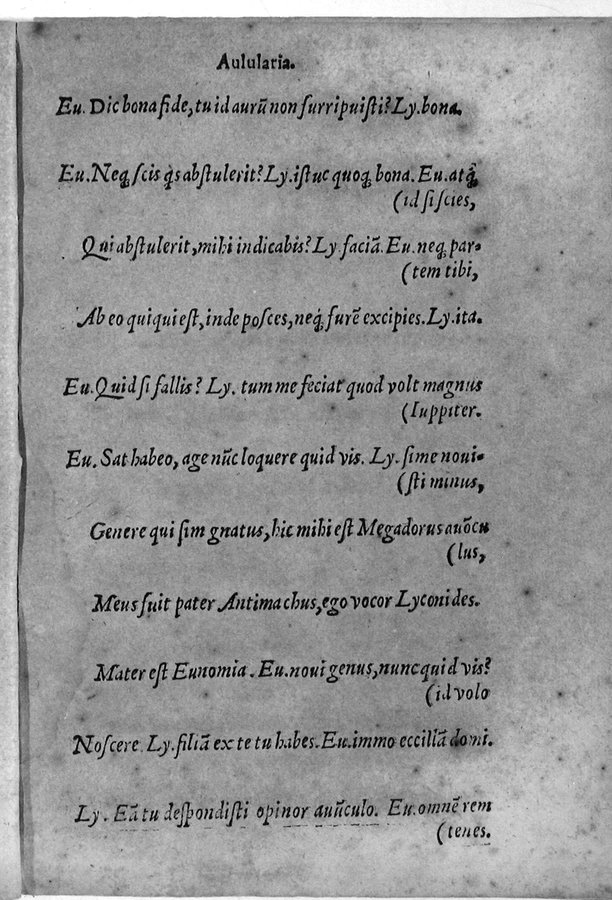 Aulularia.
Eu. Dic bona fide, tu id aurũ non surripuisti? Ly. bona.
Eu. Neqꝫ scis qs abstulerit? Ly. istuc quoqꝫ bona. Eu. atqꝫ
(id si scies,
Qui abstulerit, mihi indicabis? Ly faciã. Eu. neqꝫ par-
(tem tibi,
Ab eo quiqui est, inde posces, neqꝫ furẽ excipies. Ly. ita.
Eu. Quid si fallis? Ly. tum me feciat quod volt magnus
(Iuppiter.
Eu. Sat habeo, age nũc loquere quid vis. Ly. si me novi-
(sti minus,
Genere qui sim gnatus, hic mihi est Megadorus avõcu
(lus,
Meus fuit pater Antimachus, ego vocor Lyconides.
Mater est Eunomia. Eu. noui genus, nunc quid vis?
(id volo
Noscere. Ly. filiã ex te tu habes. Eu. immo eccillã domi.
Ly. Eã tu despondisti opinor auũculo. Eu. omnẽ rem
(tenes.